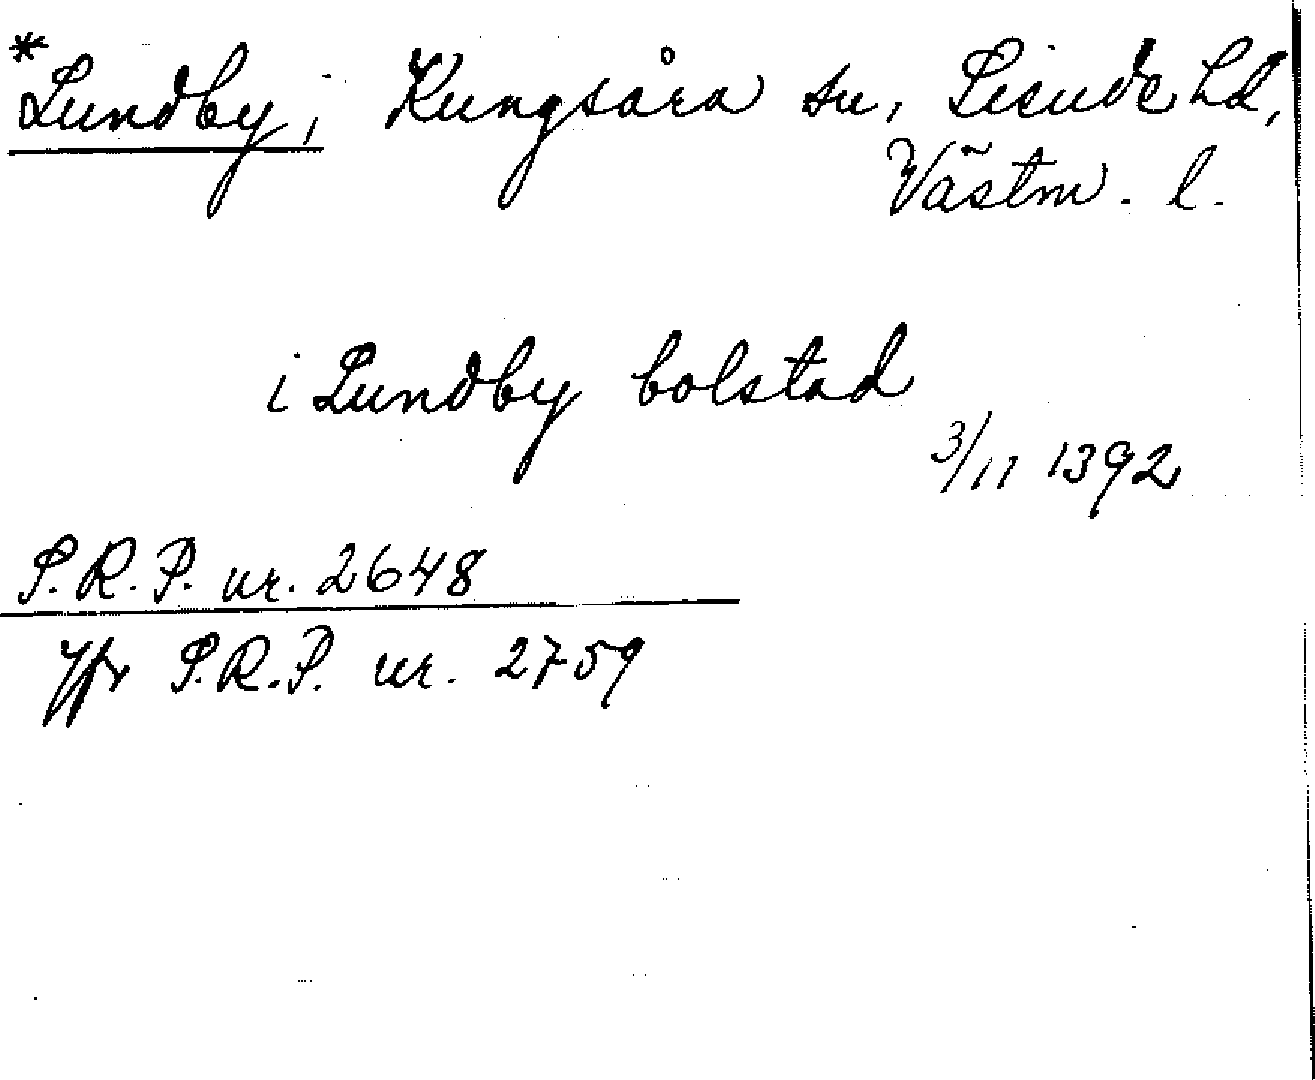 *Lundby, Kungsåra sn, Siende hd,
Västm. l.
i Lundby bolstad
3/11 1392
S.R.P. nr. 2648
Jfr S.R.P. nr. 2759